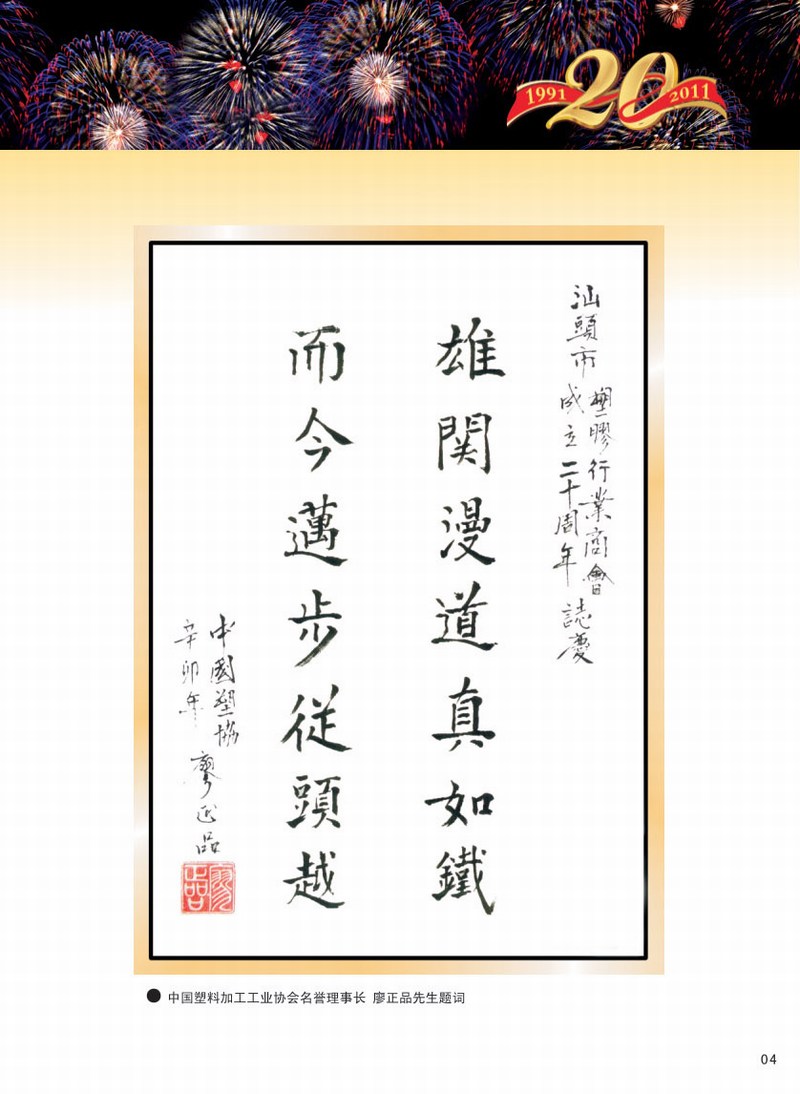 1991 20 2011
汕頭市塑膠行業商會
成立二十周年誌慶
雄関漫道真如鐵
而今邁步從頭越
中國塑協 廖正品
辛卯年
中国塑料加工工业协会名誉理事长 廖正品先生题词
04